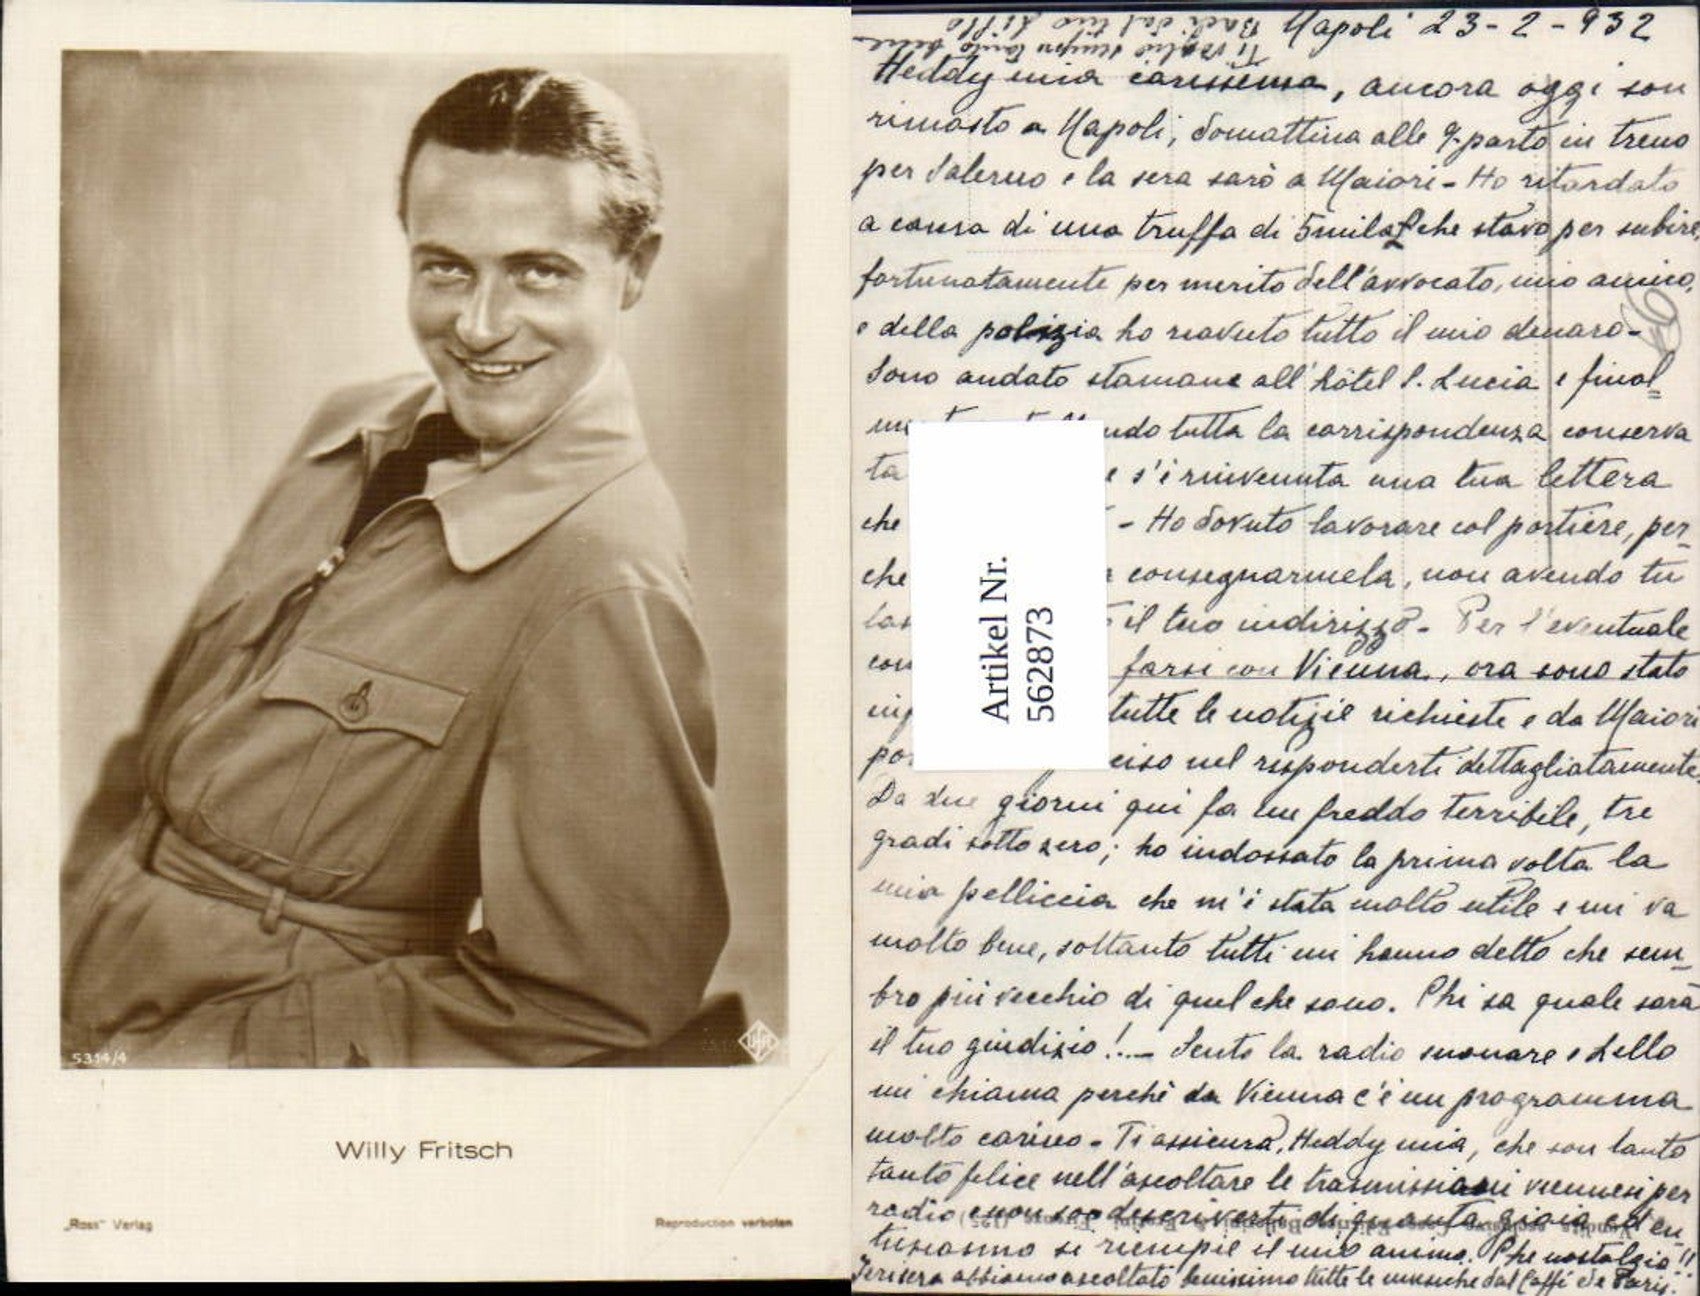 5314/4
UFA
Willy Fritsch
„Ross“ Verlag
Reproduction verboten
Napoli 23-2-932
Ti voglio sempre tanto bene
Baci dal tuo Lillo
Heddy mia carissima, ancora oggi son
rimasto a Napoli, domattina alle 9 parto in treno
per Salerno e la sera sarò a Maiori - Ho ritardato
a causa di una truffa di 5mila £ che stavo per subire,
fortunatamente per merito dell'avvocato, mio amico,
e della polizia ho riavuto tutto il mio denaro -
Sono andato stamane all'hôtel S. Lucia e final_
ndo tutta la corrispondenza conserva
ta e s'è rinvenuta una tua lettera
che - Ho dovuto lavorare col portiere, per_
che consegnarmela, non avendo tu
las il tuo indirizzo - Per l'eventuale
con farsi con Vienna, ora sono stato
tutte le notizie richieste e da Maiori
po ciso nel risponderti dettagliatamente.
Da due giorni qui fa un freddo terribile, tre
gradi sotto zero; ho indossato la prima volta la
mia pelliccia che m'è stata molto utile e mi va
molto bene, soltanto tutti mi hanno detto che sem_
bro più vecchio di quel che sono. Chi sa quale sarà
il tuo giudizio!... Sento la radio suonare e Lello
mi chiama perchè da Vienna c'è un programma
molto carino - Ti assicuro, Heddy mia, che son tanto
tanto felice nell'ascoltare le trasmissioni viennesi per
radio e non so descriverti di quanta gioia ed en_
tusiasmo si riempie il mio animo. Che nostalgia!!
Ierisera abbiamo ascoltato benissimo tutte le musiche dal Caffè de Paris.
Artikel Nr.
562873